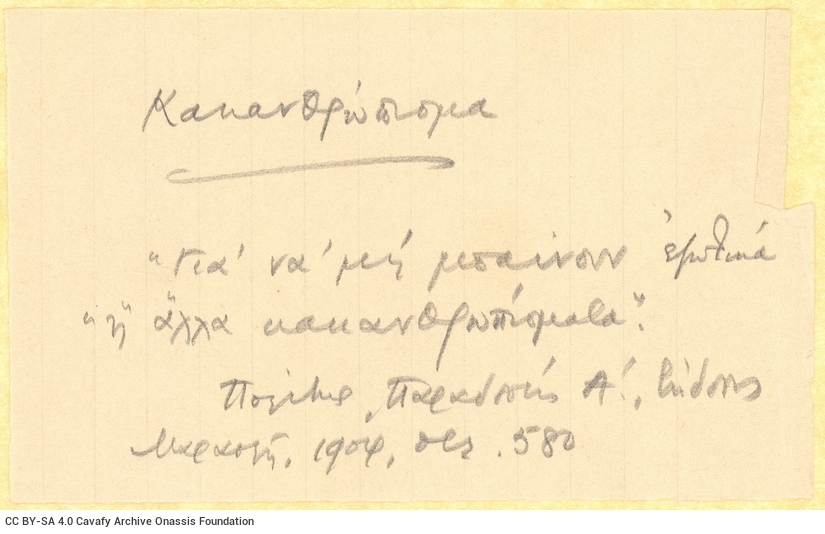 Κακανθρώπισμα
"Για' να' μή μπαίνουν ἐρωτικά
"ἢ ἄλλα κακανθρωπίσματα".
Πολίτης, Παραδόσεις Α', ἔκδοσις
Μαρασλῆ, 1904, σελ. 580
CC BY-SA 4.0 Cavafy Archive Onassis Foundation